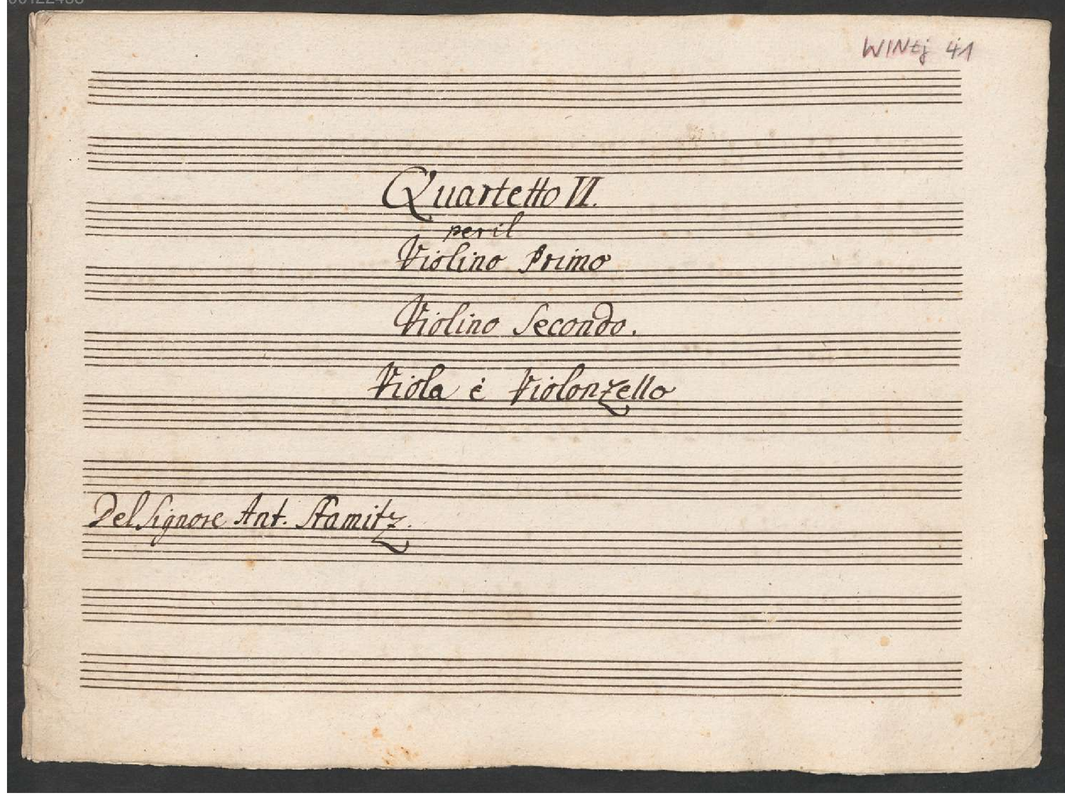 WINtj 41
Quartetto VI.
per il
Violino Primo
Violino Secondo.
Viola é Violonzello
Del Signore Ant. Stamitz.